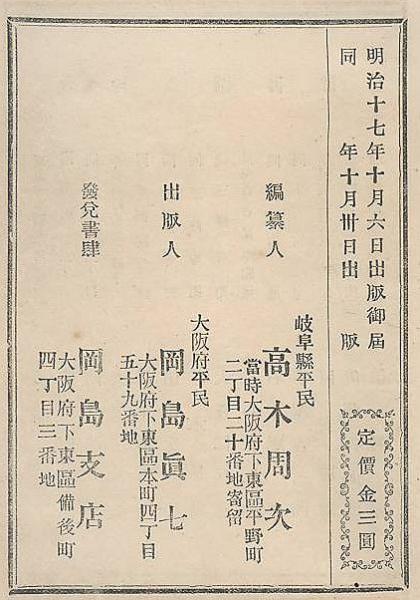 明治十七年十月六日出版御屆
同　　年十月卅日出　版
定價金三圓
岐阜縣平民
編纂人　高木周次
當時大阪府下東區平野町
二丁目二十番地寄留
大阪府平民
出版人　岡島眞七
大阪府下東區本町四丁目
五十九番地
發兌書肆　岡島支店
大阪府下東區備後町
四丁目三番地